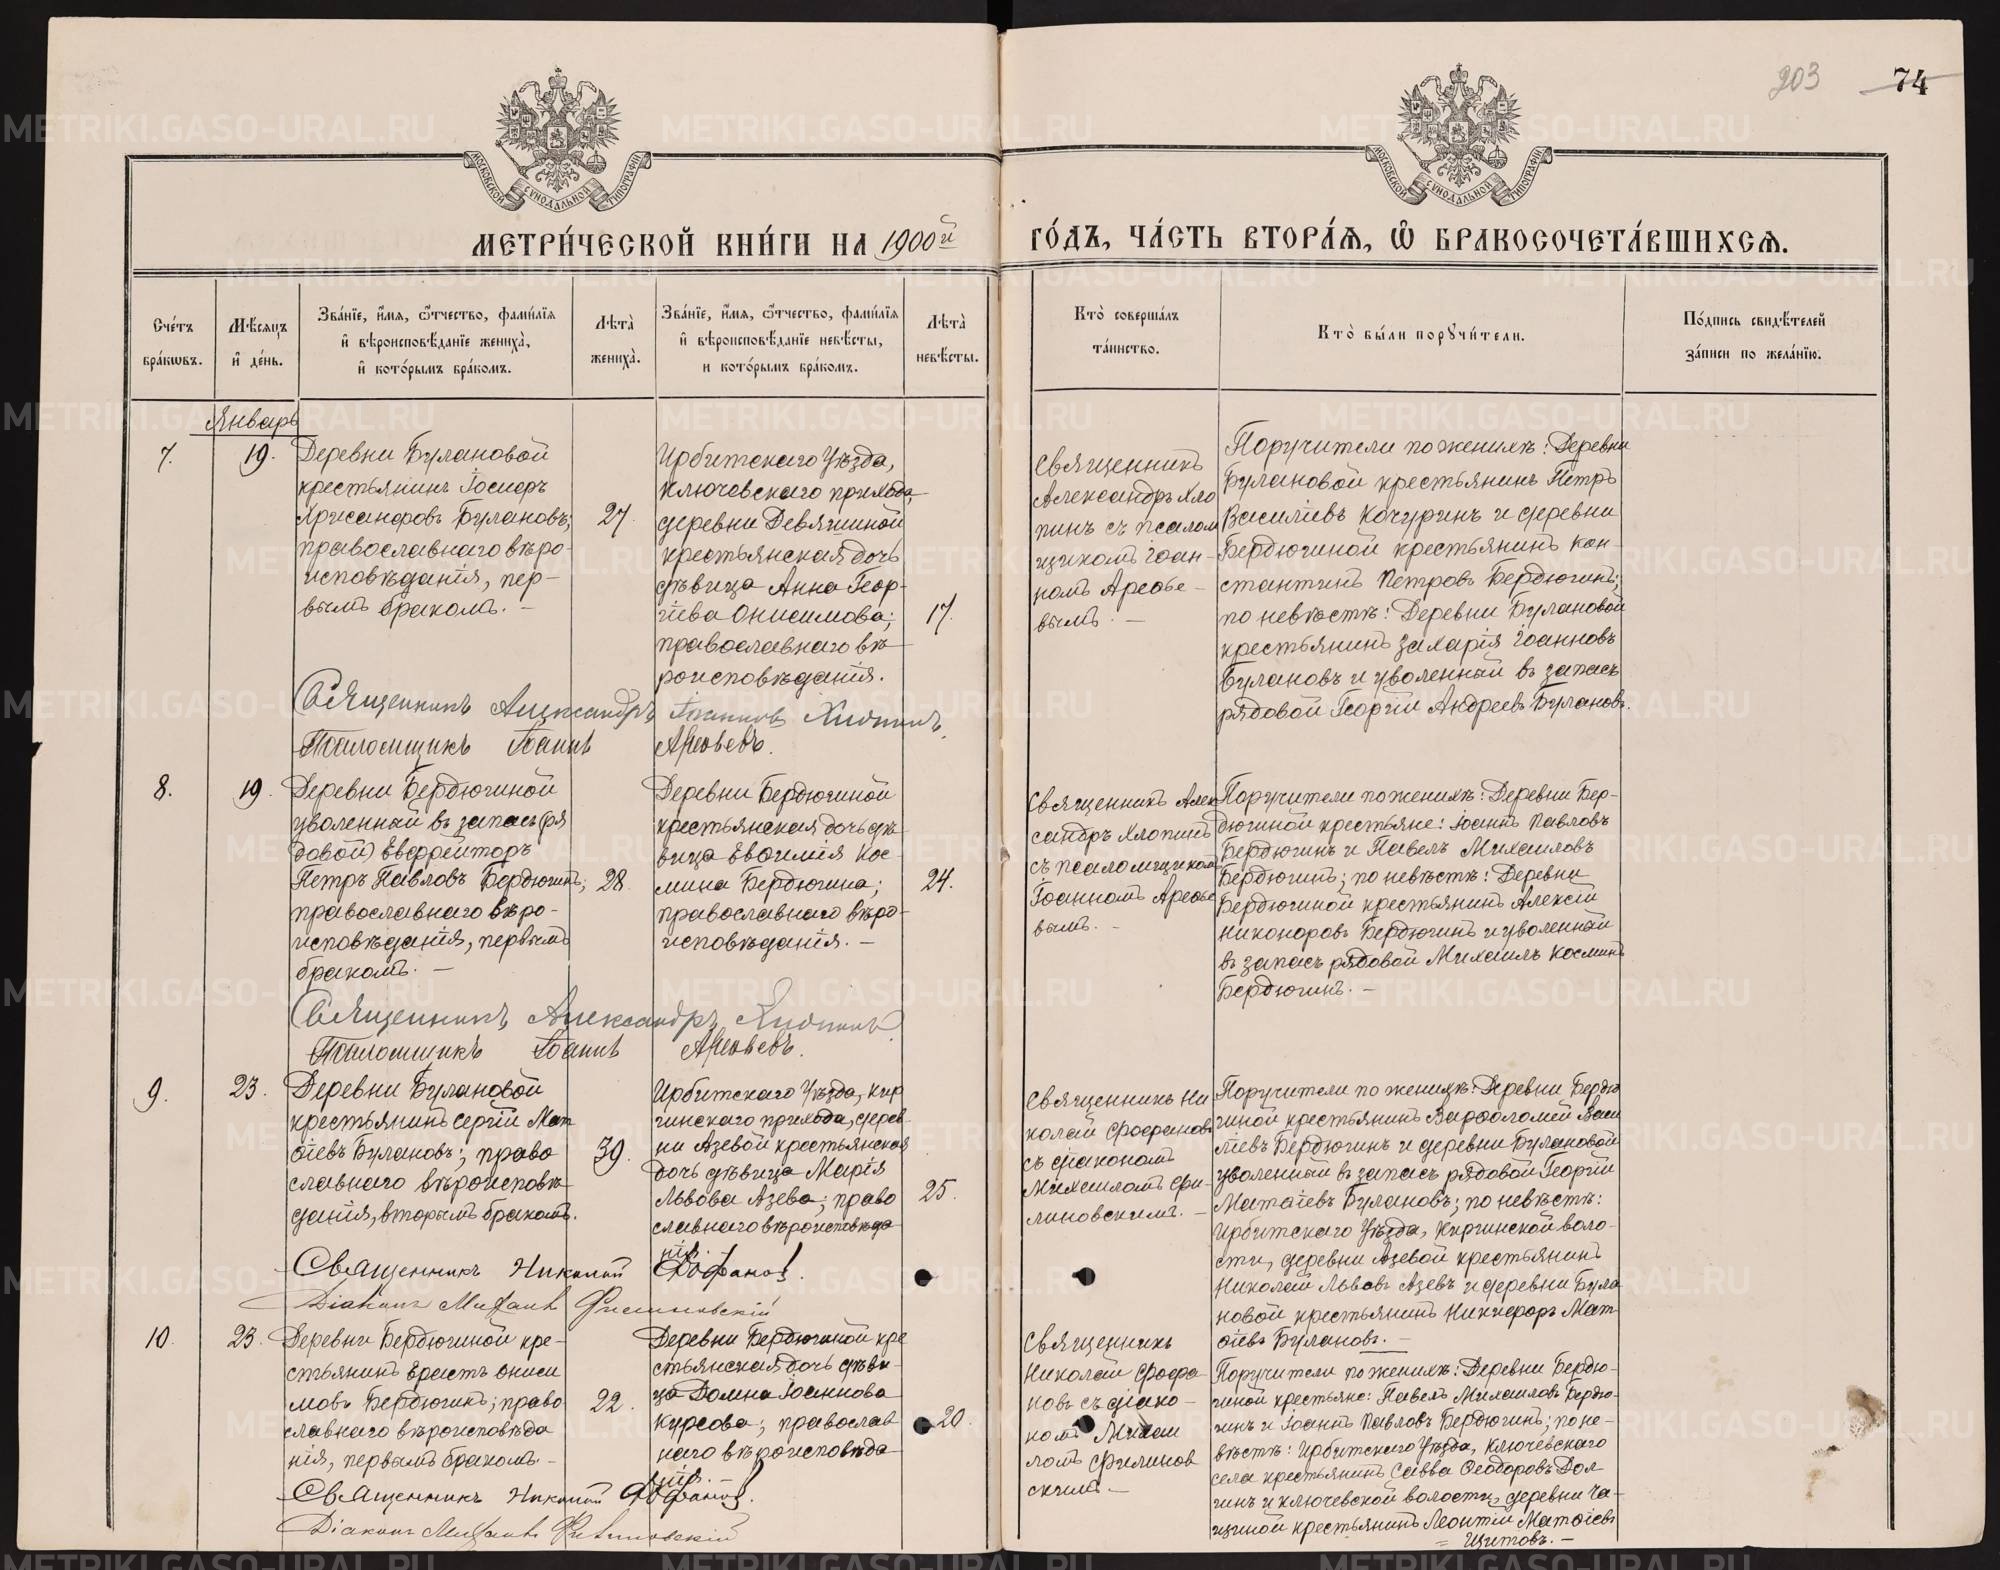 203
74
МОСКОВСКОЙ СѴНОДАЛЬНОЙ ТИПОГРАФІИ
МОСКОВСКОЙ СѴНОДАЛЬНОЙ ТИПОГРАФІИ
МЕТРИ́ЧЕСКОЙ КНИ́ГИ НА 1900й ГО́ДЪ, ЧА́СТЬ ВТОРА́Ѧ, Ѽ БРАКОСОЧЕТА́ВШИХСѦ.
Сче́тъ бра́кѡвъ.
Мѣ́сѧцъ и҆ де́нь.
Зва́нїе, и҆́мѧ, ѻ҆́тчество, фами́лїѧ
и҆ вѣроисповѣ́данїе жениха̀,
и҆ кото́рымъ бра́комъ.
Лѣта̀ жениха̀.
Зва́нїе, и҆́мѧ, ѻ҆́тчество, фами́лїѧ
и҆ вѣроисповѣ́данїе невѣ́сты,
и кото́рымъ бра́комъ.
Лѣта̀ невѣ́сты.
Кто̀ соверша́лъ та́инство.
Кто̀ бы́ли порꙋчи́тели.
По́дпись свидѣ́телей
за́писи по жела́нїю.
Январь
7.
19.
Деревни Булановой
крестьянинъ Іосифъ
Хрисанфовъ Булановъ;
православнаго вѣро-
исповѣданія, пер-
вымъ бракомъ. –
27.
Ирбитскаго Уѣзда,
Ключевскаго прихода,
деревни Девяшиной
крестьянская дочь
дѣвица Анна Геор-
гіева Онисимова;
православнаго вѣ-
роисповѣданія.
17.
Священникъ
Александръ Хло
пинъ съ псалом
щикомъ Іоан-
номъ Арефье-
вымъ. –
Поручители по женихѣ: Деревни
Булановой крестьянинъ Петръ
Василіевъ Кочуринъ и деревни
Бердюгиной крестьянинъ Кон-
стантинъ Петровъ Бердюгинъ;
по невѣстѣ: Деревни Булановой
крестьянинъ Захарія Іоанновъ
Булановъ и уволенный въ запасъ
рядовой Георгій Андреевъ Булановъ.
Священникъ Александръ Іоанновъ Хлопинъ.
Псаломщикъ Іоаннъ Арефьевъ.
8.
19.
Деревни Бердюгиной
уволенный въ запасъ (ря
довой) Ефрейторъ
Петръ Павловъ Бердюгинъ;
православнаго вѣро-
исповѣданія, первымъ
бракомъ. –
28.
Деревни Бердюгиной
крестьянская дочь дѣ
вица Евѳимія Кос-
мина Бердюгина;
православнаго вѣро-
исповѣданія. –
24.
Священникъ Алек
сандръ Хлопинъ
съ псаломщикомъ
Іоанномъ Арефье
вымъ. –
Поручители по женихѣ: Деревни Бер-
дюгиной крестьяне: Іоаннъ Павловъ
Бердюгинъ и Павелъ Михаиловъ
Бердюгинъ; по невѣстѣ: Деревни
Бердюгиной крестьянинъ Алексій
Никоноровъ Бердюгинъ и уволенный
въ запасъ рядовой Михаилъ Косминъ
Бердюгинъ. –
Священникъ Александръ Хлопинъ.
Псаломщикъ Іоаннъ Арефьевъ.
9.
23.
Деревни Булановой
крестьянинъ Сергій Мат
ѳіевъ Булановъ; право
славнаго вѣроисповѣ
данія, вторымъ бракомъ.
39.
Ирбитскаго Уѣзда, Кир
гинскаго прихода, дерев-
ни Азевой крестьянская
дочь дѣвица Марія
Львова Азева; право
славнаго вѣроисповѣда
нія. –
25.
Священникъ Ни
колай Фофановъ
съ діакономъ
Михаиломъ Фи-
линовскимъ. –
Поручители по женихѣ: Деревни Бердю
гиной крестьянинъ Варѳоломей Васи
ліевъ Бердюгинъ и деревни Булановой
уволенный въ запасъ рядовой Георгій
Матѳіевъ Булановъ; по невѣстѣ:
Ирбитскаго Уѣзда, Киргинской воло-
сти, деревни Азевой крестьянинъ
Николай Львовъ Азевъ и деревни Була
новой крестьянинъ Никифоръ Мат
ѳіевъ Булановъ. –
Священникъ Николай Фофановъ.
Діаконъ Михаилъ Филиновскій
10.
23.
Деревни Бердюгиной кре-
стьянинъ Ерастъ Ониси
мовъ Бердюгинъ; право
славнаго вѣроисповѣда
нія, первымъ бракомъ. –
22.
Деревни Бердюгиной кре
стьянская дочь дѣви-
ца Домна Іоаннова
Курсова; православ
наго вѣроисповѣда
нія. –
20.
Священникъ
Николай Фофа
новъ съ діако-
номъ Михаи
ломъ Филинов
скимъ. –
Поручители по женихѣ: Деревни Бердю-
гиной крестьяне: Павелъ Михаиловъ Бердю-
гинъ и Іоаннъ Павловъ Бердюгинъ; по не-
вѣстѣ: Ирбитскаго Уѣзда, Ключевскаго
села крестьянинъ Савва Ѳеодоровъ Дол
гинъ и Ключевской волости, деревни Ча-
щиной крестьянинъ Леонтій Матѳіевъ
Щитовъ. –
Священникъ Николай Фофановъ.
Діаконъ Михаилъ Филиновскій